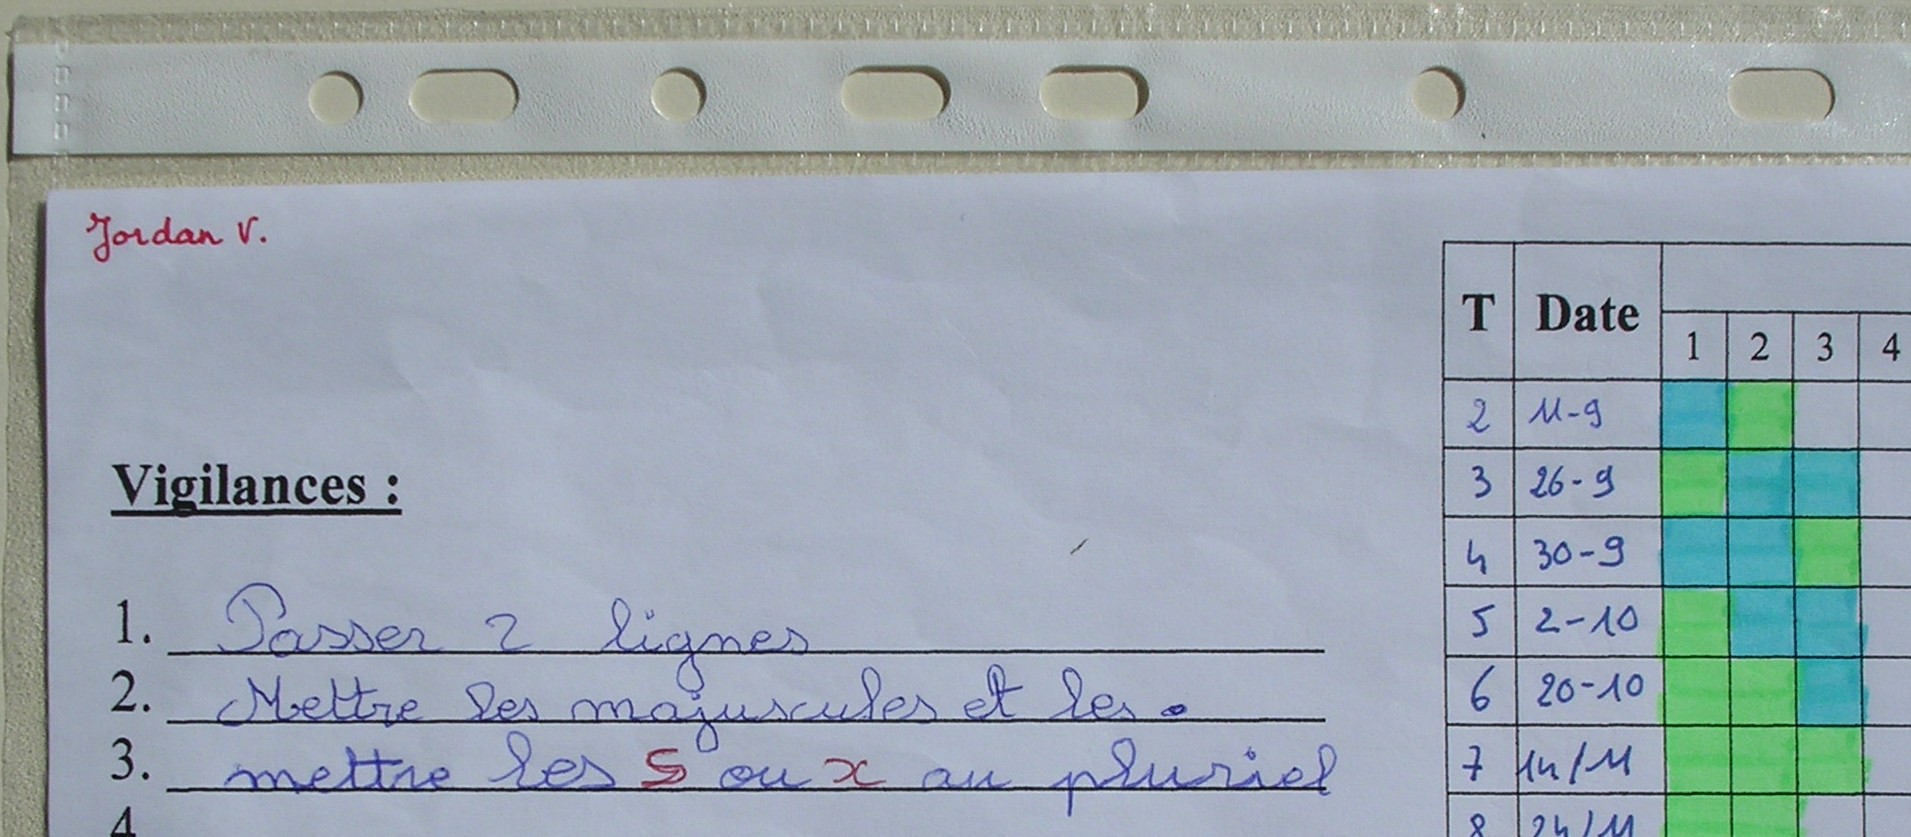 Jordan V.
Vigilances :
1. Passer 2 lignes
2. Mettre les majuscules et les .
3. mettre les s ou x au pluriel
4.
T Date
1 2 3 4
2 11-9
3 26-9
4 30-9
5 2-10
6 20-10
7 14/11
8 24/11